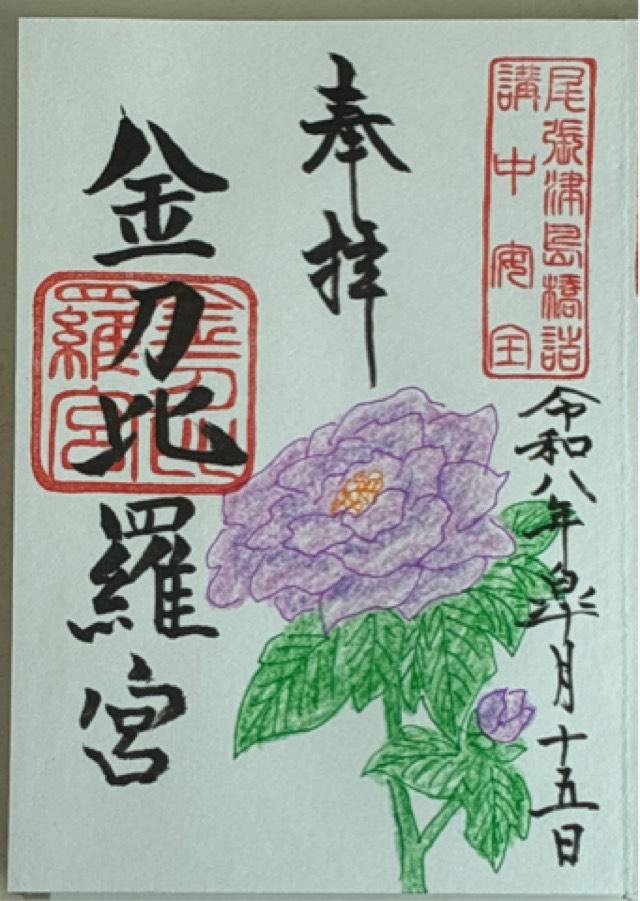 尾張津島橋詰
講中安全
令和八年皐月十五日
奉拝
金刀比羅宮
金刀比
羅宮